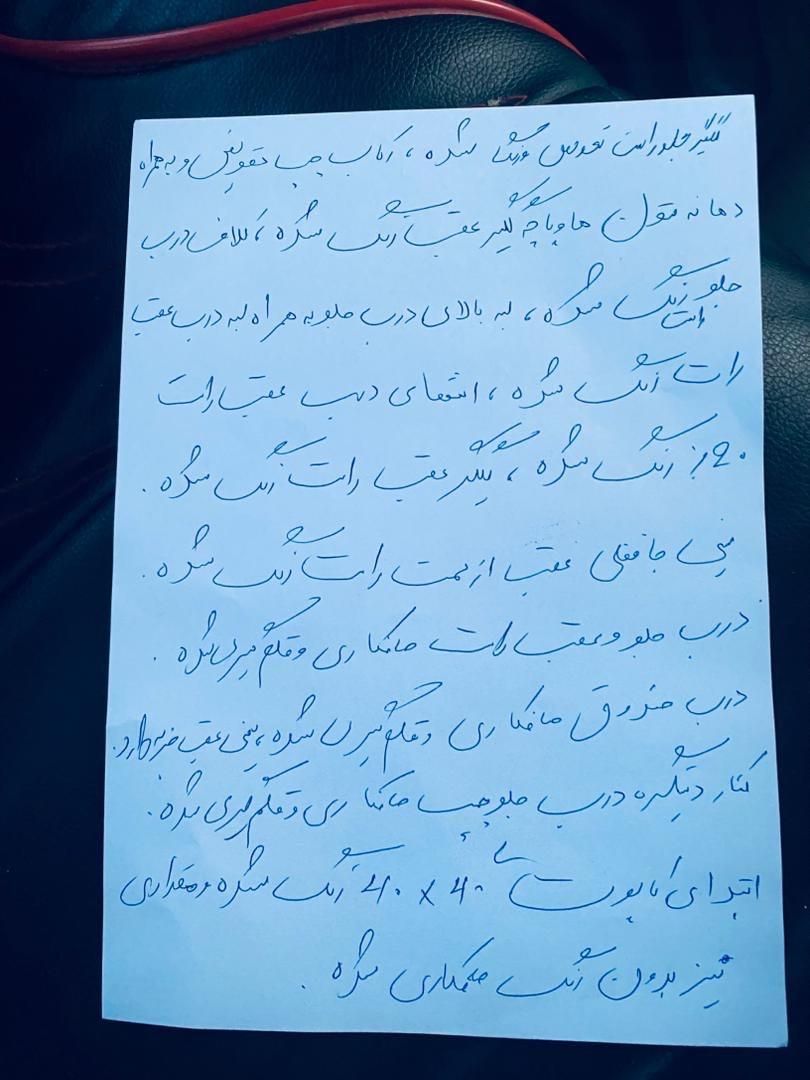 گلگیر جلو راست تعویض و رنگ شده ، رکاب چپ تعویض و به همراه
ستون ها و پاچه گلگیر عقب رنگ شده ، کلاف درب
جلو راست رنگ شده ، لبه بالای درب جلو به همراه لبه درب عقب
راست رنگ شده ، انتهای درب عقب راست
۲۰٪ رنگ شده ، گلگیر عقب راست رنگ شده .
سینی جا قفلی عقب از سمت راست رنگ شده .
درب جلو و عقب راست صافکاری و قلم گیری شده .
درب صندوق صافکاری و قلم گیری شده ، سینی عقب ضربه دارد .
کنار دستگیره درب جلو چپ صافکاری و قلم گیری شده .
ابتدای کاپوت ۴۰ × ۴۰ رنگ شده و مقداری
نیز بدون رنگ صافکاری شده .